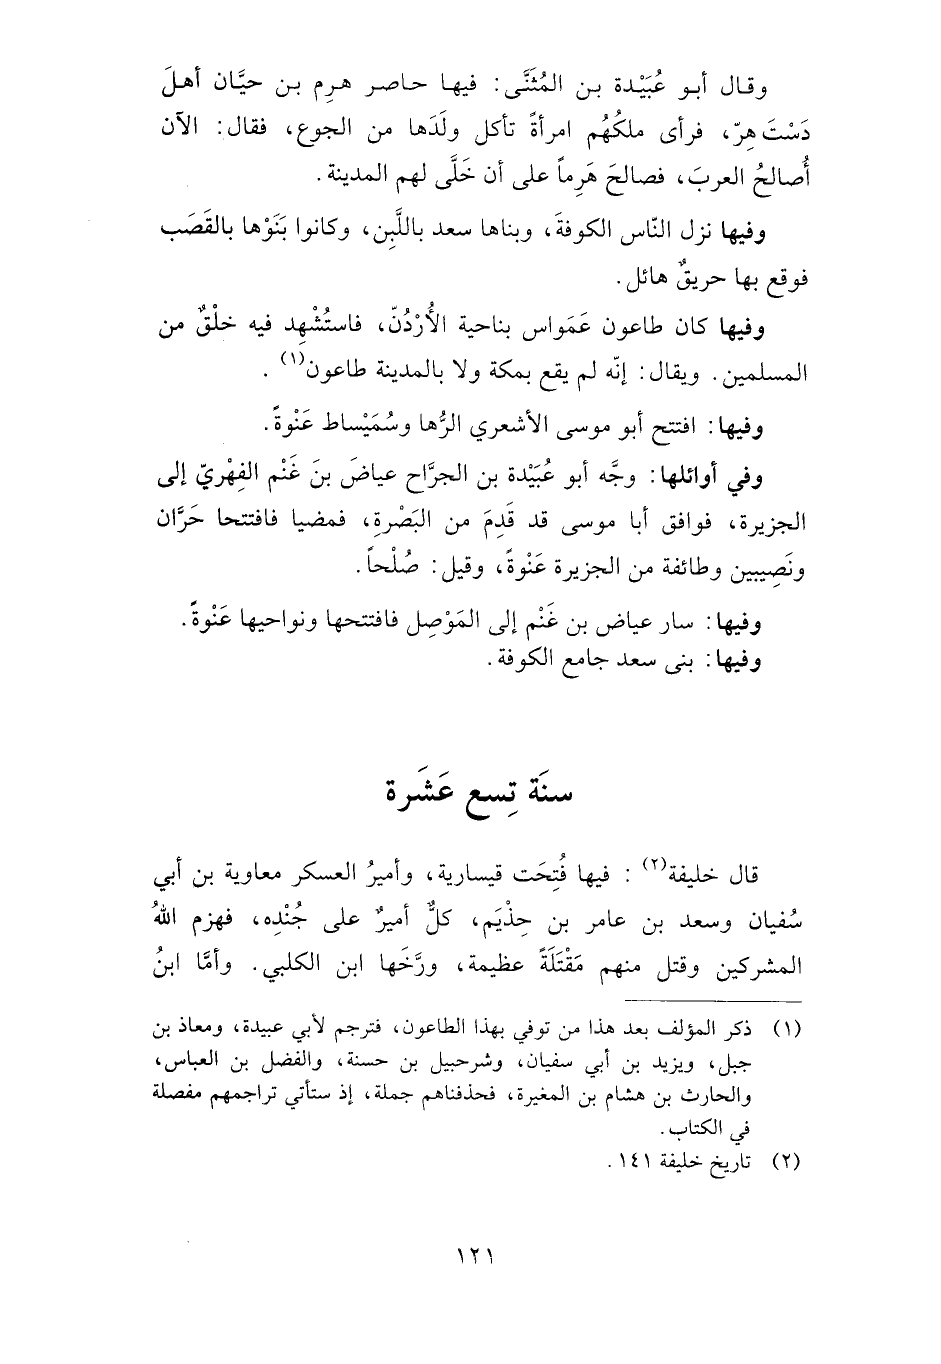 وقال أبو عُبَيْدة بن المُثَنَّى: فيها حاصر هرِم بن حيَّان أهلَ
دَسْتَ هِرّ، فرأى ملكُهُم امرأةً تأكل ولَدَها من الجوع، فقال: الآن
أُصالحُ العربَ، فصالحَ هَرِماً على أن خَلَّى لهم المدينة.
وفيها نزل النّاس الكوفةَ، وبناها سعد باللَّبِن، وكانوا بَنَوْها بالقَصَب
فوقع بها حريقٌ هائل.
وفيها كان طاعون عَمَواس بناحية الأُرْدُنّ، فاستُشْهِد فيه خلْقٌ من
المسلمين. ويقال: إنّه لم يقع بمكة ولا بالمدينة طاعون(١).
وفيها: افتتح أبو موسى الأشعري الرُّها وسُمَيْساط عَنْوةً.
وفي أوائلها: وجَّه أبو عُبَيْدة بن الجرَّاح عياضَ بنَ غَنْم الفِهْريّ إلى
الجزيرة، فوافق أبا موسى قد قَدِمَ من البَصْرةِ، فمضيا فافتتحا حَرَّان
ونَصِيبين وطائفة من الجزيرة عَنْوةً، وقيل: صُلْحاً.
وفيها: سار عياض بن غَنْم إلى المَوْصِل فافتتحها ونواحيها عَنْوةً.
وفيها: بنى سعد جامع الكوفة.
سنَة تِسع عَشَرة
قال خليفة(٢): فيها فُتِحَت قيسارية، وأميرُ العسكر معاوية بن أبي
سُفيان وسعد بن عامر بن حِذْيَم، كلٌّ أميرٌ على جُنْدِه، فهزم اللهُ
المشركين وقتل منهم مَقْتَلَةً عظيمة، ورَّخَها ابن الكلبي. وأمَّا ابنُ
(١) ذكر المؤلف بعد هذا من توفي بهذا الطاعون، فترجم لأبي عبيدة، ومعاذ بن
جبل، ويزيد بن أبي سفيان، وشرحبيل بن حسنة، والفضل بن العباس،
والحارث بن هشام بن المغيرة، فحذفناهم جملة، إذ ستأتي تراجمهم مفصلة
في الكتاب.
(٢) تاريخ خليفة ١٤١.
١٢١